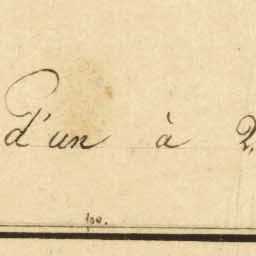 d'un à 2.